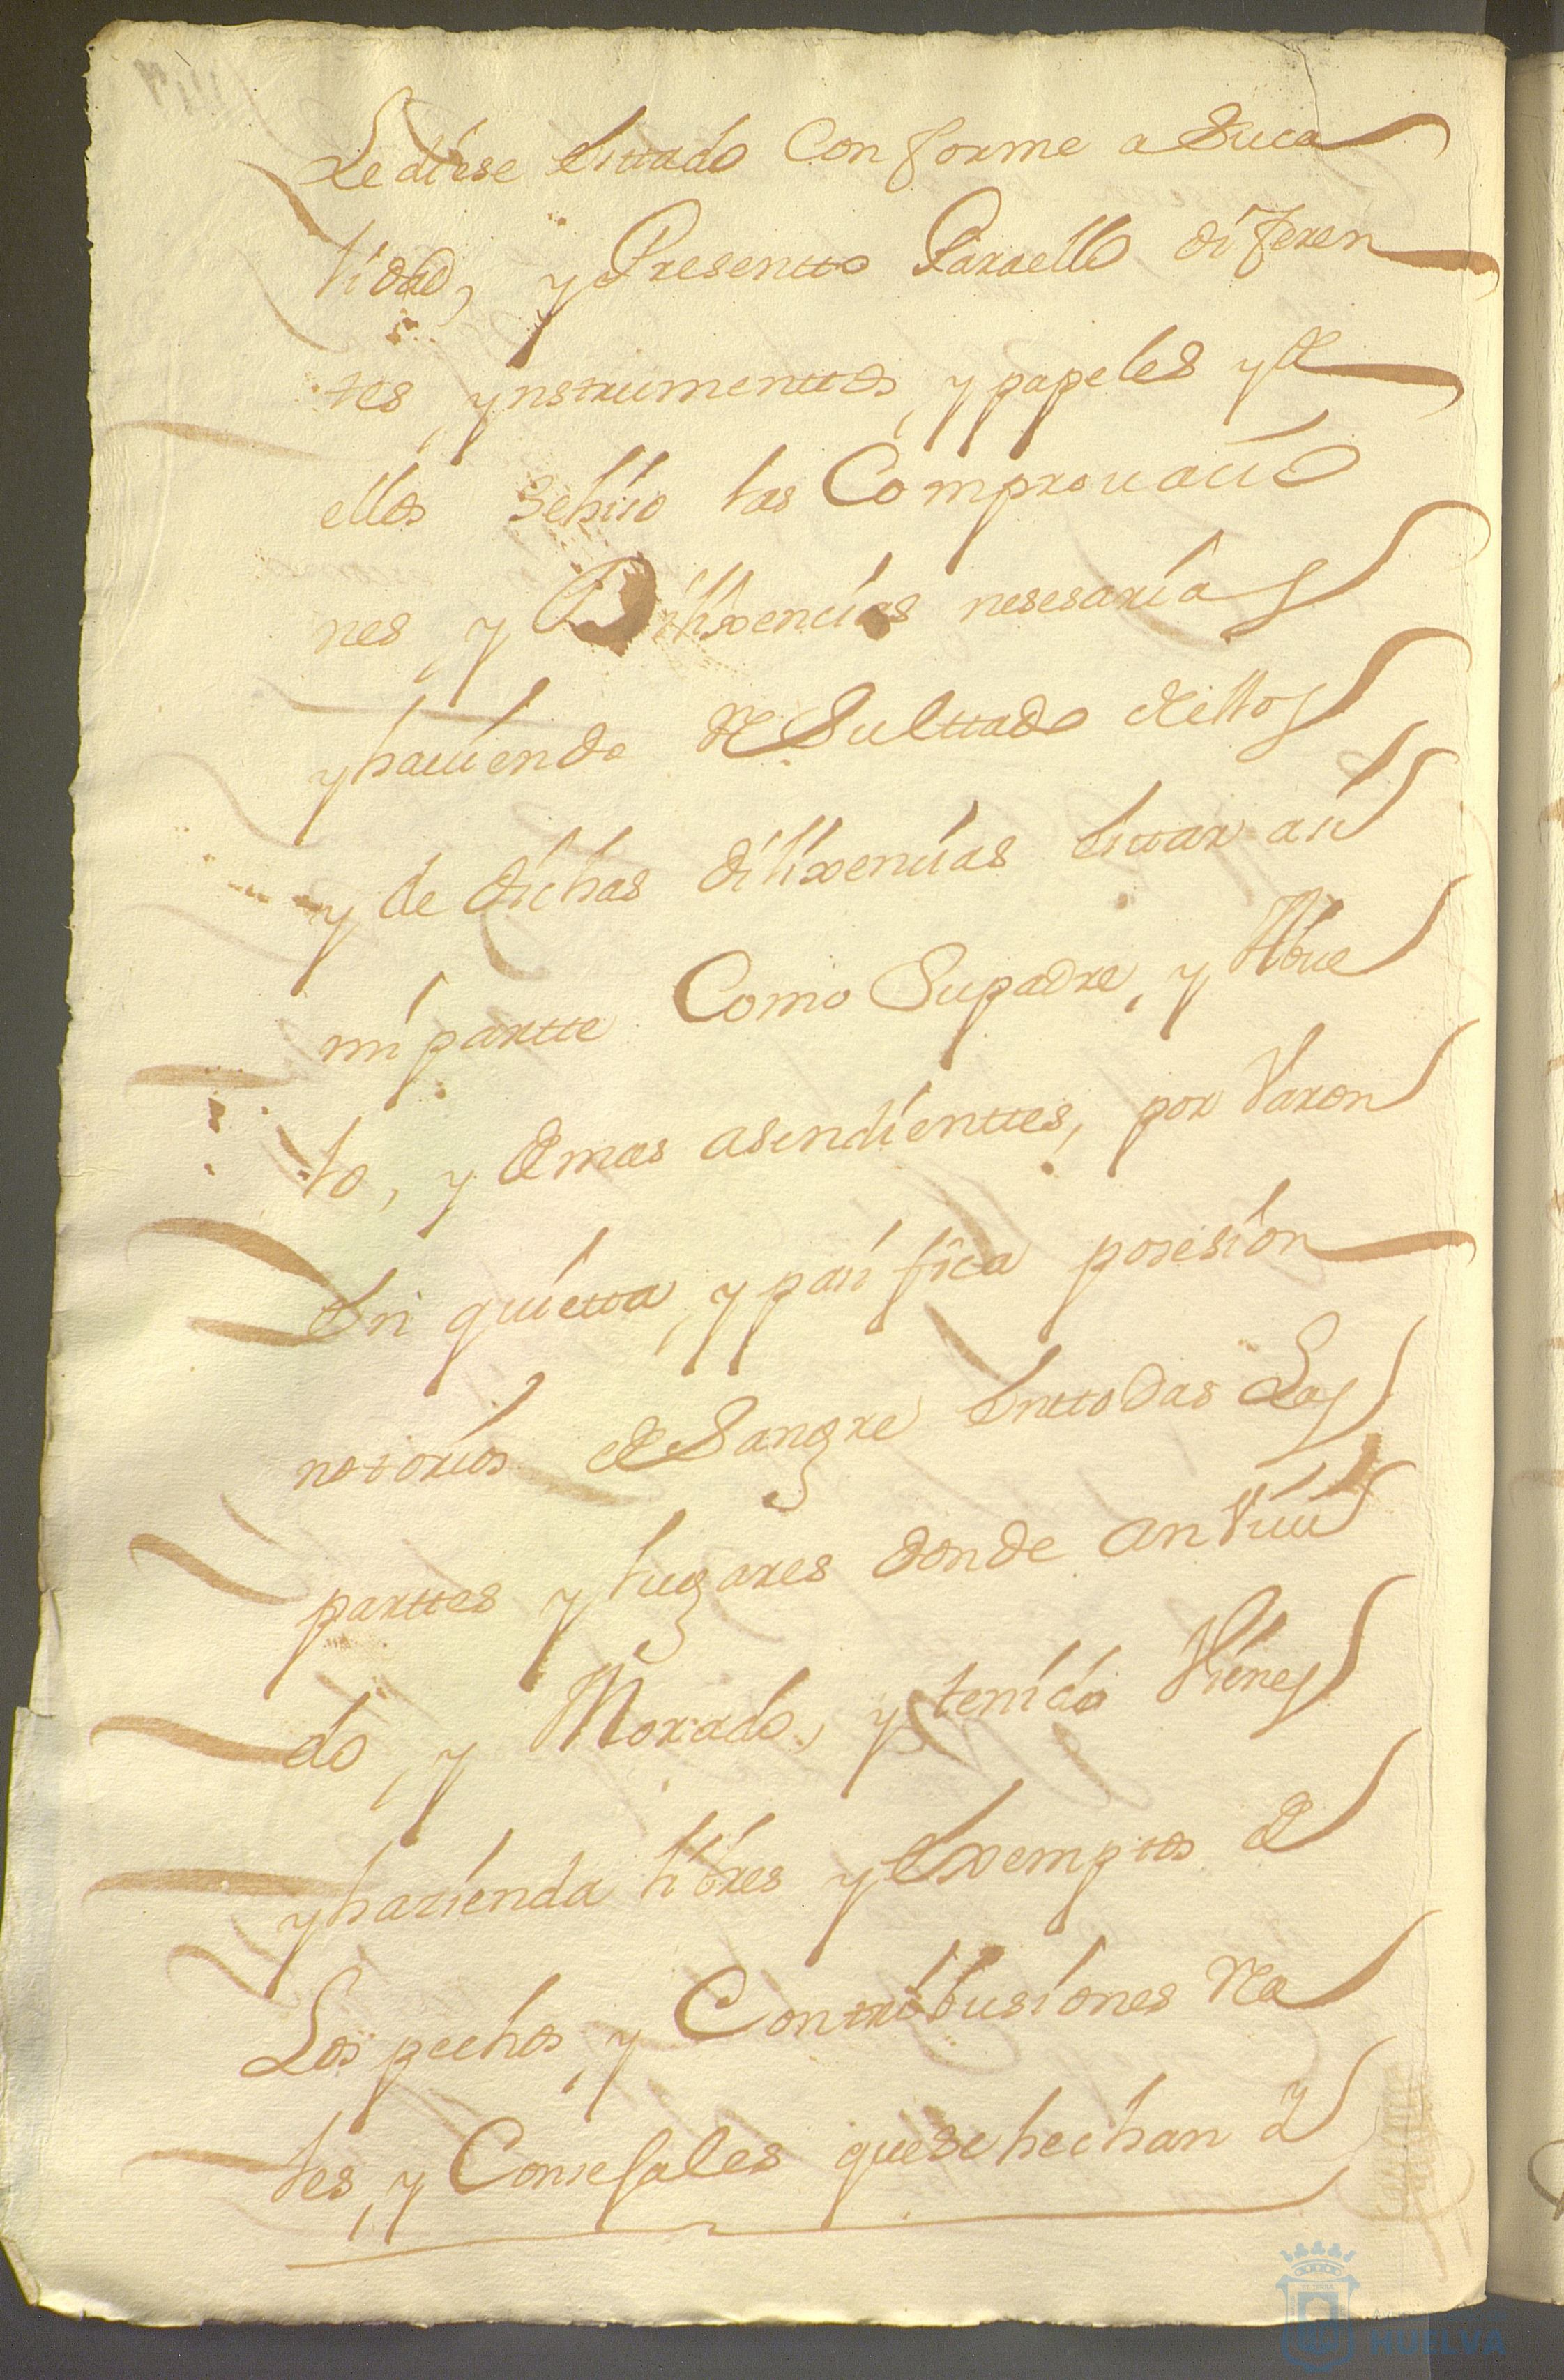 Le diese Estado Conforme a Su ca
lidad, y Presentto Para ello diferen
tes, ynstrumenttos, y papeles y de
ellos se hizo las Comprouacio
nes y Dilixencias nesesarias
y hauiendo ReSulttado de ellos
y de dichas dilixencias Esttar asi
mi partte Como Su padre, y Abue
lo, y demas asendienttes, por Varon
En quietta, y pacifica posesion
notorios de Sangre En ttodas Las
parttes y lugares donde an Viui
do, y Morado, y tenido Vienes
y hazienda libres y Exemptos de
Los pechos, y Contribusiones Rea
les, y Consejales que se hechan y
HUELVA